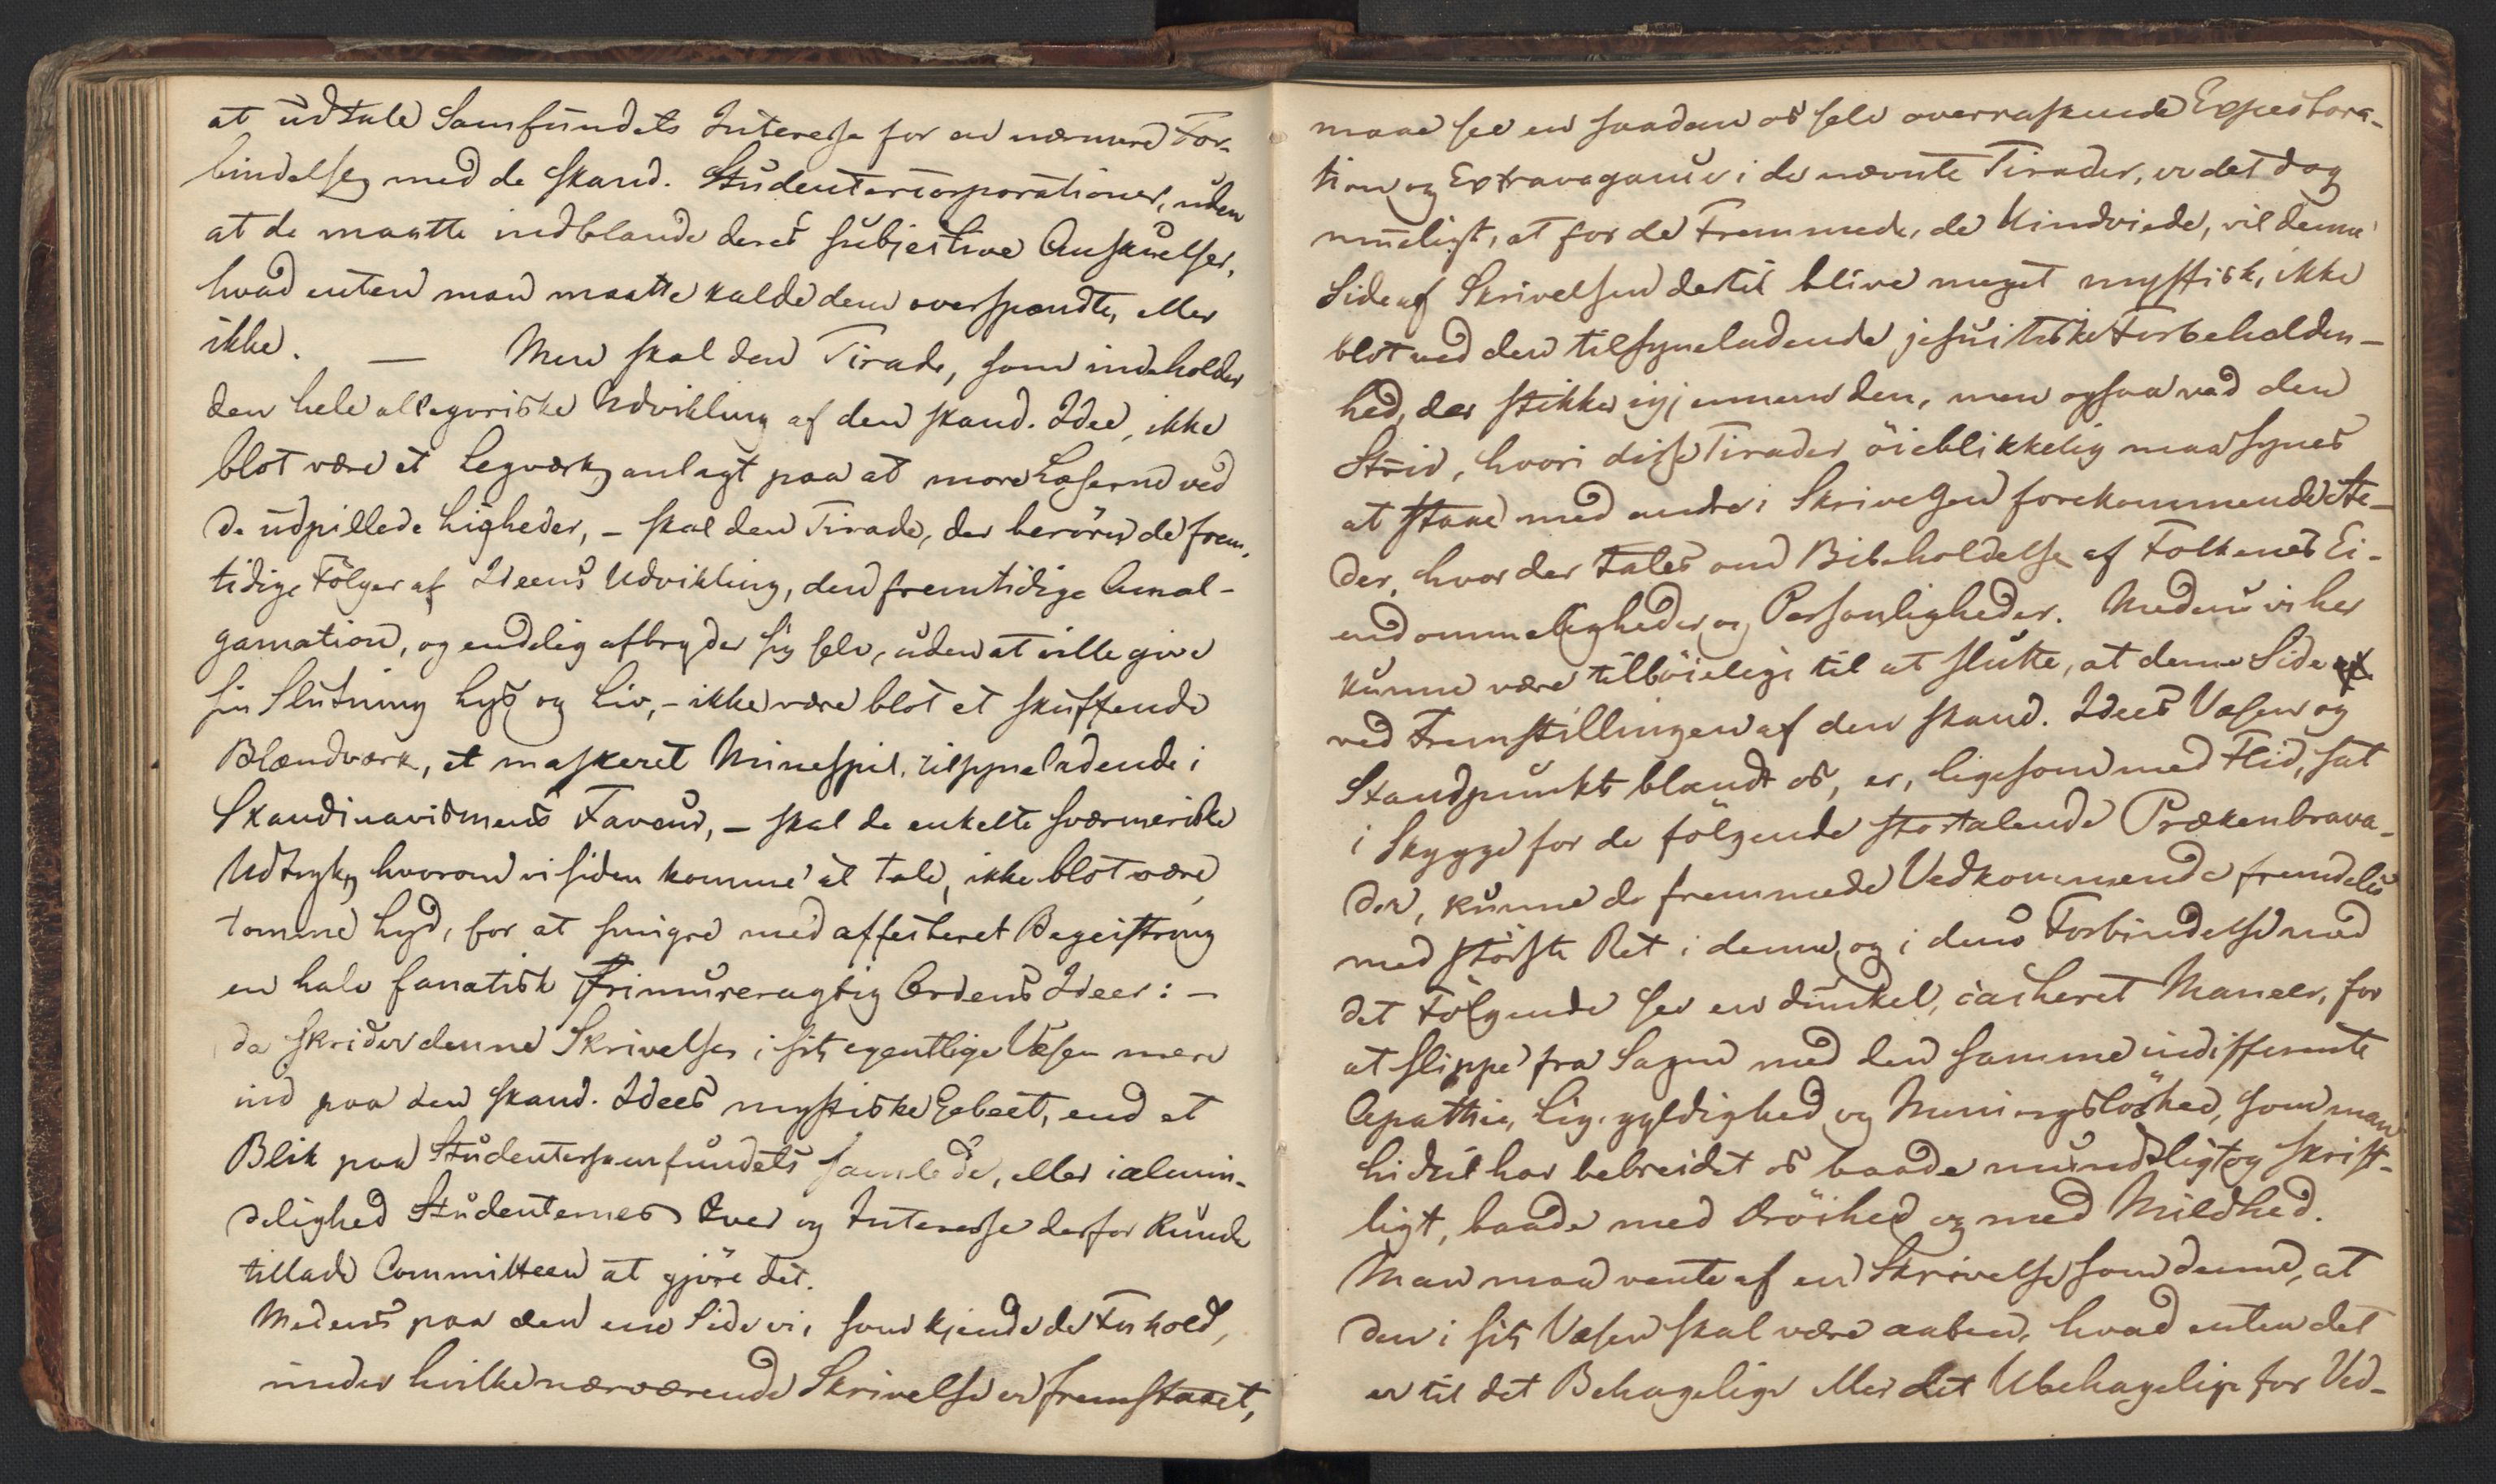 at udtale Samfundets Interesse for en nærmere For-
bindelse med de skand. Studentercorporationer, uden
at de maatte indblande deres subjective Anskuelser,
hvad enten man maatte kalde dem overspændte, eller
ikke. — Men skal den Tirade, som indeholder
den hele allegoriske Udvikling af den skand. Idee, ikke
blot være et Legværk, anlagt paa at more Læserne ved
de udpillede Ligheder, – skal den Tirade, der berörer de frem-
tidige Fölger af Ideens Udvikling, den fremtidige Amal-
gamation, og endelig afbryder sig selv, uden at ville give
sin Slutning Lys og Liv, – ikke være blot et skuffende
Blændværk, et maskeret Minespil, tilsyneladende i
Skandinavismens Faveur, – skal de enkelte sværmeriske
Udtryk, hvorom vi siden komme at tale, ikke blot være
tomme Lyd, for at smigre med affecteret Begeistring
en halv fanatisk frimureragtig Ordens Ideer: –
da skrider denne Skrivelse i sit egentlige Væsen mere
ind paa den skand. Idees mystiske Gebeet, end et
Blik paa Studentersamfundets samlede, eller i almin-
delighed Studenternes Iver og Interesse derfor kunde
tillade Committeen at gjöre det.
Medens paa den ene Side vi, som kjende de Forhold,
under hvilke nærværende Skrivelse er fremstaaet,
maae see en saadan os selv overraskende Expectora-
tion og Extravagance i de nævnte Tirader, er det dog
mueligt, at for de Fremmede, de Uindviede, vil denne
Side af Skrivelsen dertil blive meget mystisk, ikke
blot ved den tilsyneladende jesuitiske Forbeholden-
hed, der stikker igjennem den, men ogsaa ved den
Strid, hvori disse Tirader öieblikkelig maa synes
at staae med andre i Skrivelsen forekommende Ste-
der, hvor der tales om Bibeholdelse af Folkenes Ei-
endommeligheder og Personligheder. Medens vi her
kunne være tilböielige til at slutte, at denne Side
ved Fremstillingen af den skand. Idees Væsen og
Standpunkt blandt os, er, ligesom med Flid, sat
i Skygge for de fölgende stortalende Prækenbrava-
der, kunne de fremmede Vedkommende fremdeles
med störste Ret i denne, og i dens Forbindelse med
det Fölgende see en dunkel, cacheret Maneer, for
at slippe fra Sagen med den samme indifferente
Apathie, Ligegyldighed og Meningslöshed, som man
hidtil har bebreidet os baade mundtligt og skrift-
ligt, baade med Dröihed og med Mildhed.
Man maa vente af en Skrivelse som denne, at
den i sit Væsen skal være aaben, hvad enten det
er til det Behagelige eller det Ubehagelige for Ved-